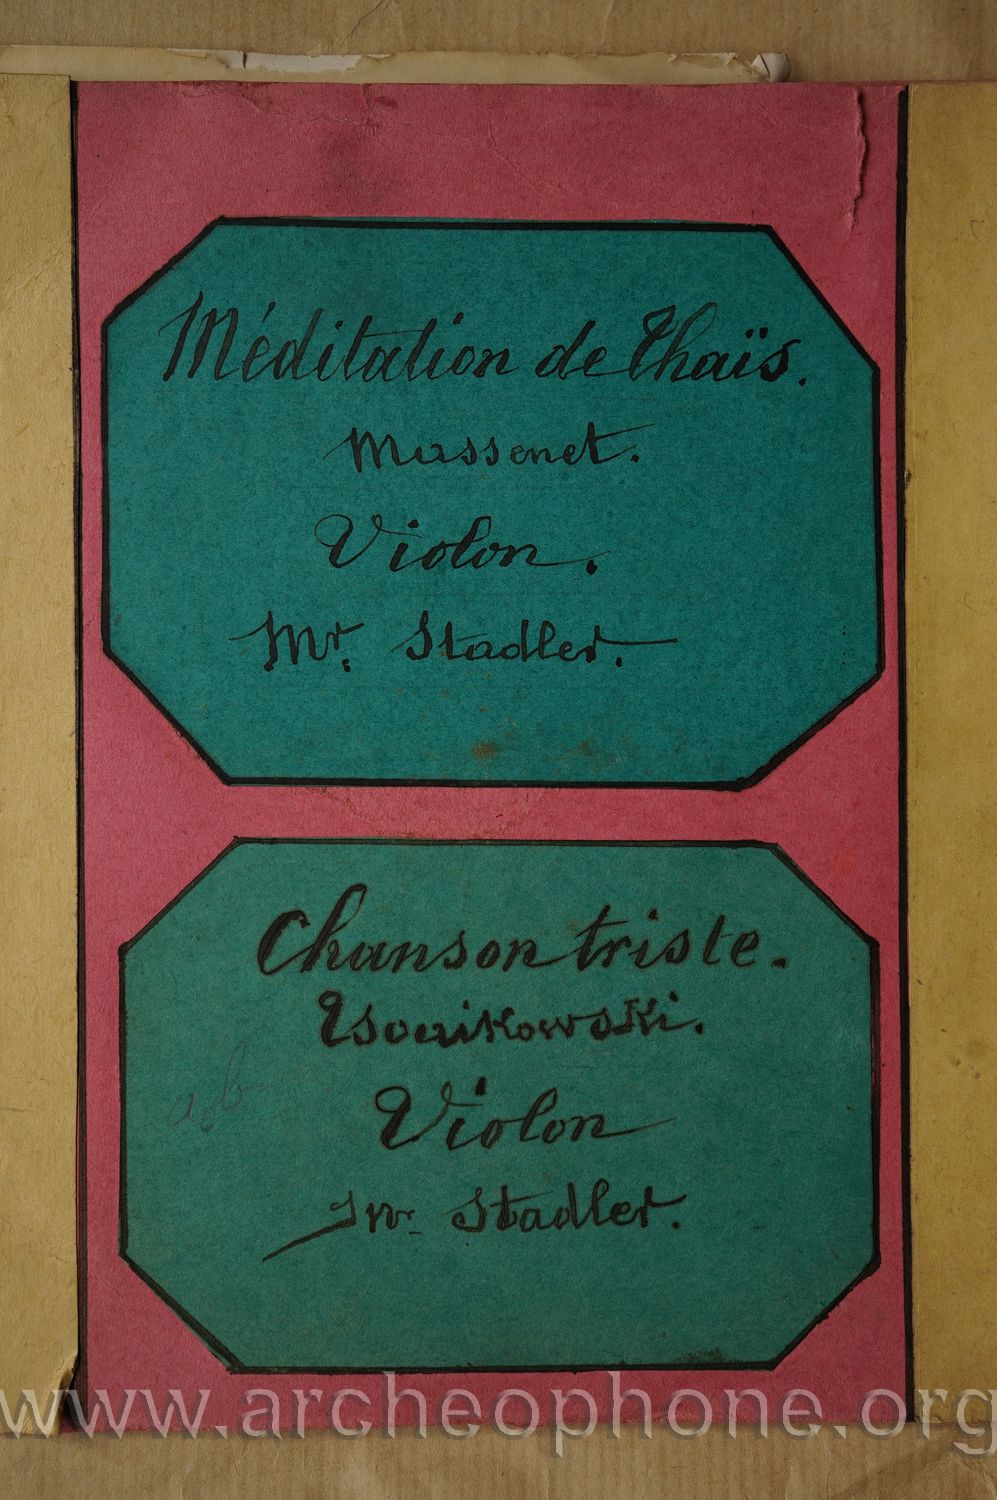 Méditation de Thaïs.
Massenet.
Violon.
Mr. Stadler.
Chanson triste.
Tsoaikowski.
Violon
Mr Stadler.
www.archeophone.org